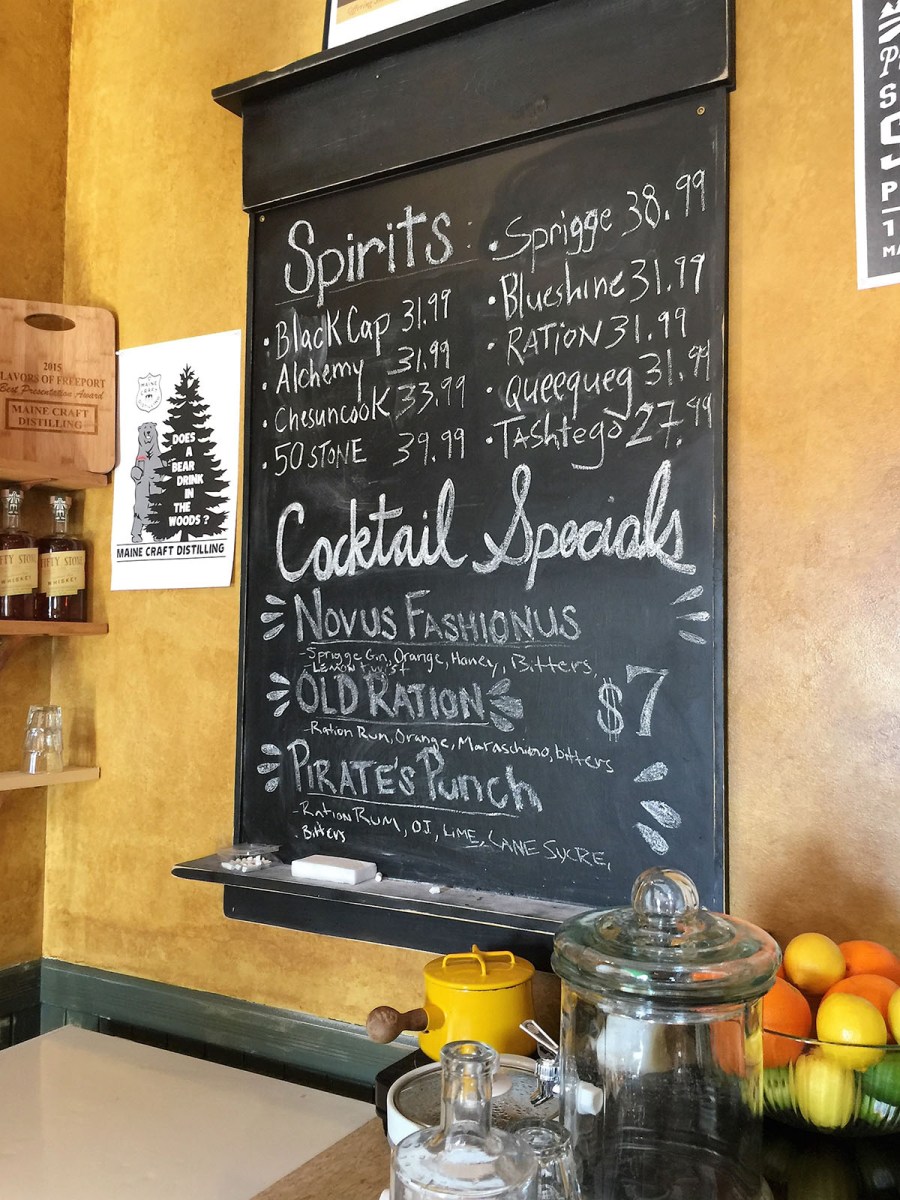 Spirits:
• Black Cap 31.99
• Alchemy 31.99
• Chesuncook 33.99
• 50 STONE 39.99
• Sprigge 38.99
• Blueshine 31.99
• RATION 31.99
• Queequeg 31.99
• TAShtego 27.99
Cocktail Specials
NOVUS FASHIONUS
- Sprigge Gin, Orange, Honey, Bitters,
- LEMON twist
OLD RATION
$7
- Ration Rum, Orange, Maraschino, bitters
PIRATE'S Punch
- Ration RUM, OJ, LIME, CANE SYCRE,
. Bitters
2015
LAVORS OF FREEPORT
Best Presentation Award
MAINE CRAFT
DISTILLING
MAINE
CRAFT
DOES
A
BEAR
DRINK
IN
THE
WOODS?
MAINE CRAFT DISTILLING
FIFTY STONE
WHISKEY
WHISKEY
P
S
P
1
MA